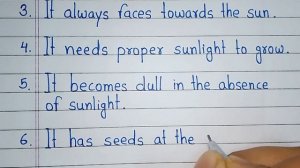 3. It always faces towards the sun.
4. It needs proper sunlight to grow.
5. It becomes dull in the absence
of sunlight.
6. It has seeds at the